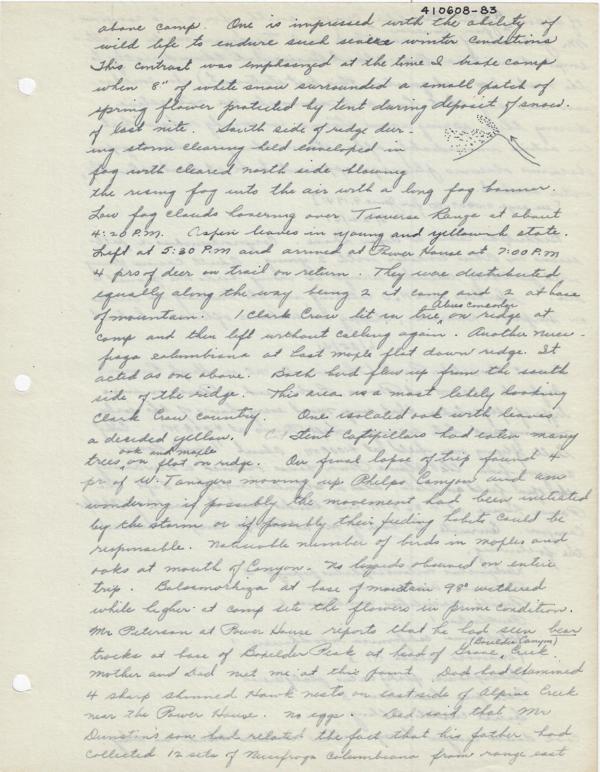 410608-83
above camp. One is impressed with the ability of
wild life to endure such severe winter conditions
This contrast was emphasized at the time I broke camp
when 8" of white snow surrounded a small patch of
spring flower protected by tent during deposit of snow
of last nite. South side of ridge dur-
ing storm clearing held enveloped in
fog with cleared north side blowing
the rising fog into the air with a long fog banner.
Low fog clouds hovering over Traverse Range at about
4:20 P.M. Aspen leaves in young and yellowish state.
Left at 5:30 P.M and arrived at Power House at 7:00 P.M
4 prs of deer on trail on return. They were distributed
equally along the way being 2 at camp and 2 at base
of mountain. 1 Clark Crow lit in tree Abies concolor on ridge at
camp and then left without calling again. Another Nuci-
fraga columbiana at last maple flat down ridge. It
acted as one above. Both bird flew up from the south
side of the ridge. This area is a most likely looking
Clark Crow country. One isolated oak with leaves
a decided yellow. Tent Catepillars had eaten many
trees, oak and maple on flat on ridge. On final lapse of trip found 4
pr of W. Tanagers moving up Phelps Canyon and am
wondering if possibly the movement had been initiated
by the storm or if possibly their feeding habits could be
responsible. Noticable number of birds in maples and
oaks at mouth of Canyon. No lizards observed on entire
trip. Balsamorhiza at base of mountain 98% withered
while higher at camp site the flowers in prime condition.
Mr Peterson at Power House reports that he had seen bear
tracks at base of Boulder Peak at head of Grove, (Boulder Canyon) Creek.
Mother and Dad met me at this point. Dad had examined
4 sharp shinned Hawk nests on east side of Alpine Creek
near the Power House. No eggs. Dad said that Mr
Dunstin's son had related the fact that his father had
collected 12 sets of Nucifraga Columbiana from range east